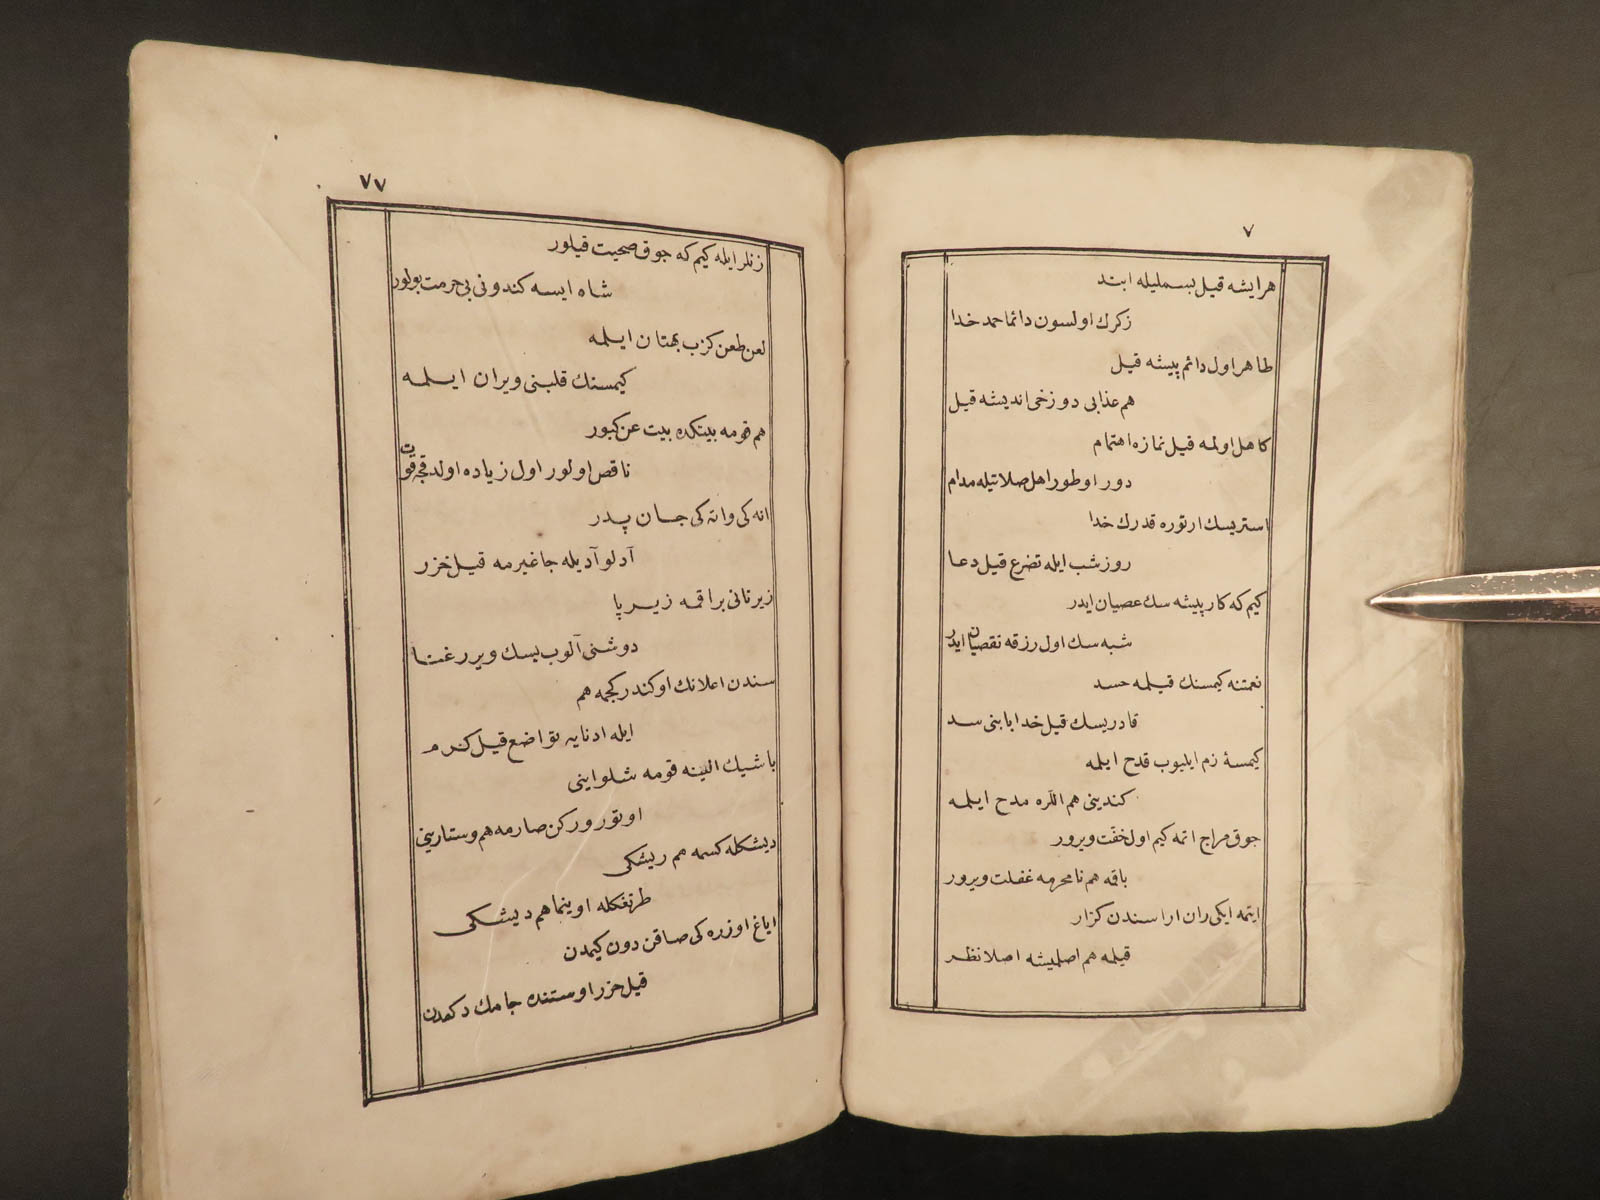 ٧
هر ایشه قیل بسملیله ابتد
زکرك اولسون دائما حمد خدا
طاهر اول دائم پیشه قیل
هم عذابی دوزخی اندیشه قیل
کاهل اولمه قیل نمازه اهتمام
دور اوطور اهل صلاتیله مدام
استریسك ارتوره قدرك خدا
روز شب ایله تضرع قیل دعا
کیم که کار پیشه سك عصیان ایدر
شبه سك اول رزقه نقصان ایدر
نعمتنه کیمسنك قیلمه حسد
قادریسك قیل خدایا بنی سد
کیمسهٔ زم ایلیوب قدح ایلمه
کندینی هم اللره مدح ایلمه
جوق مراج اتمه کیم اول خفت ویرور
باقمه هم نامحرمه غفلت ویرور
ایتمه ایکی ران اراسندن کزار
قیلمه هم اصلمیشه اصلا نظر
٧٧
زنلر ایله کیم که جوق صحبت قیلور
شاه ایسه کندونی بی حرمت بولور
لعن طعن کزب بهتان ایلمه
کیمسنك قلبنی ویران ایلمه
هم قومه بیتکده بیت عنکبور
ناقص اولور اول زیاده اولدقجه قوت
انه کی واته کی جان پدر
آدلو آدیله جاغیرمه قیل خزر
زیر نانی براقمه زیر پا
دوشنی آلوب یسك ویرر غنا
سندن اعلانك اوکندر کجمه هم
ایله ادنایه تواضع قیل کرم
باشیك الینه قومه شلواینی
اوتورورکن صارمه هم وستارینی
دیشکله کسمه هم ریشکی
طرنغکله اوینما هم دیشکی
ایاغ اوزره کی صاقن دون کیمدن
قیل حزر اوستنده جامك دکمدن